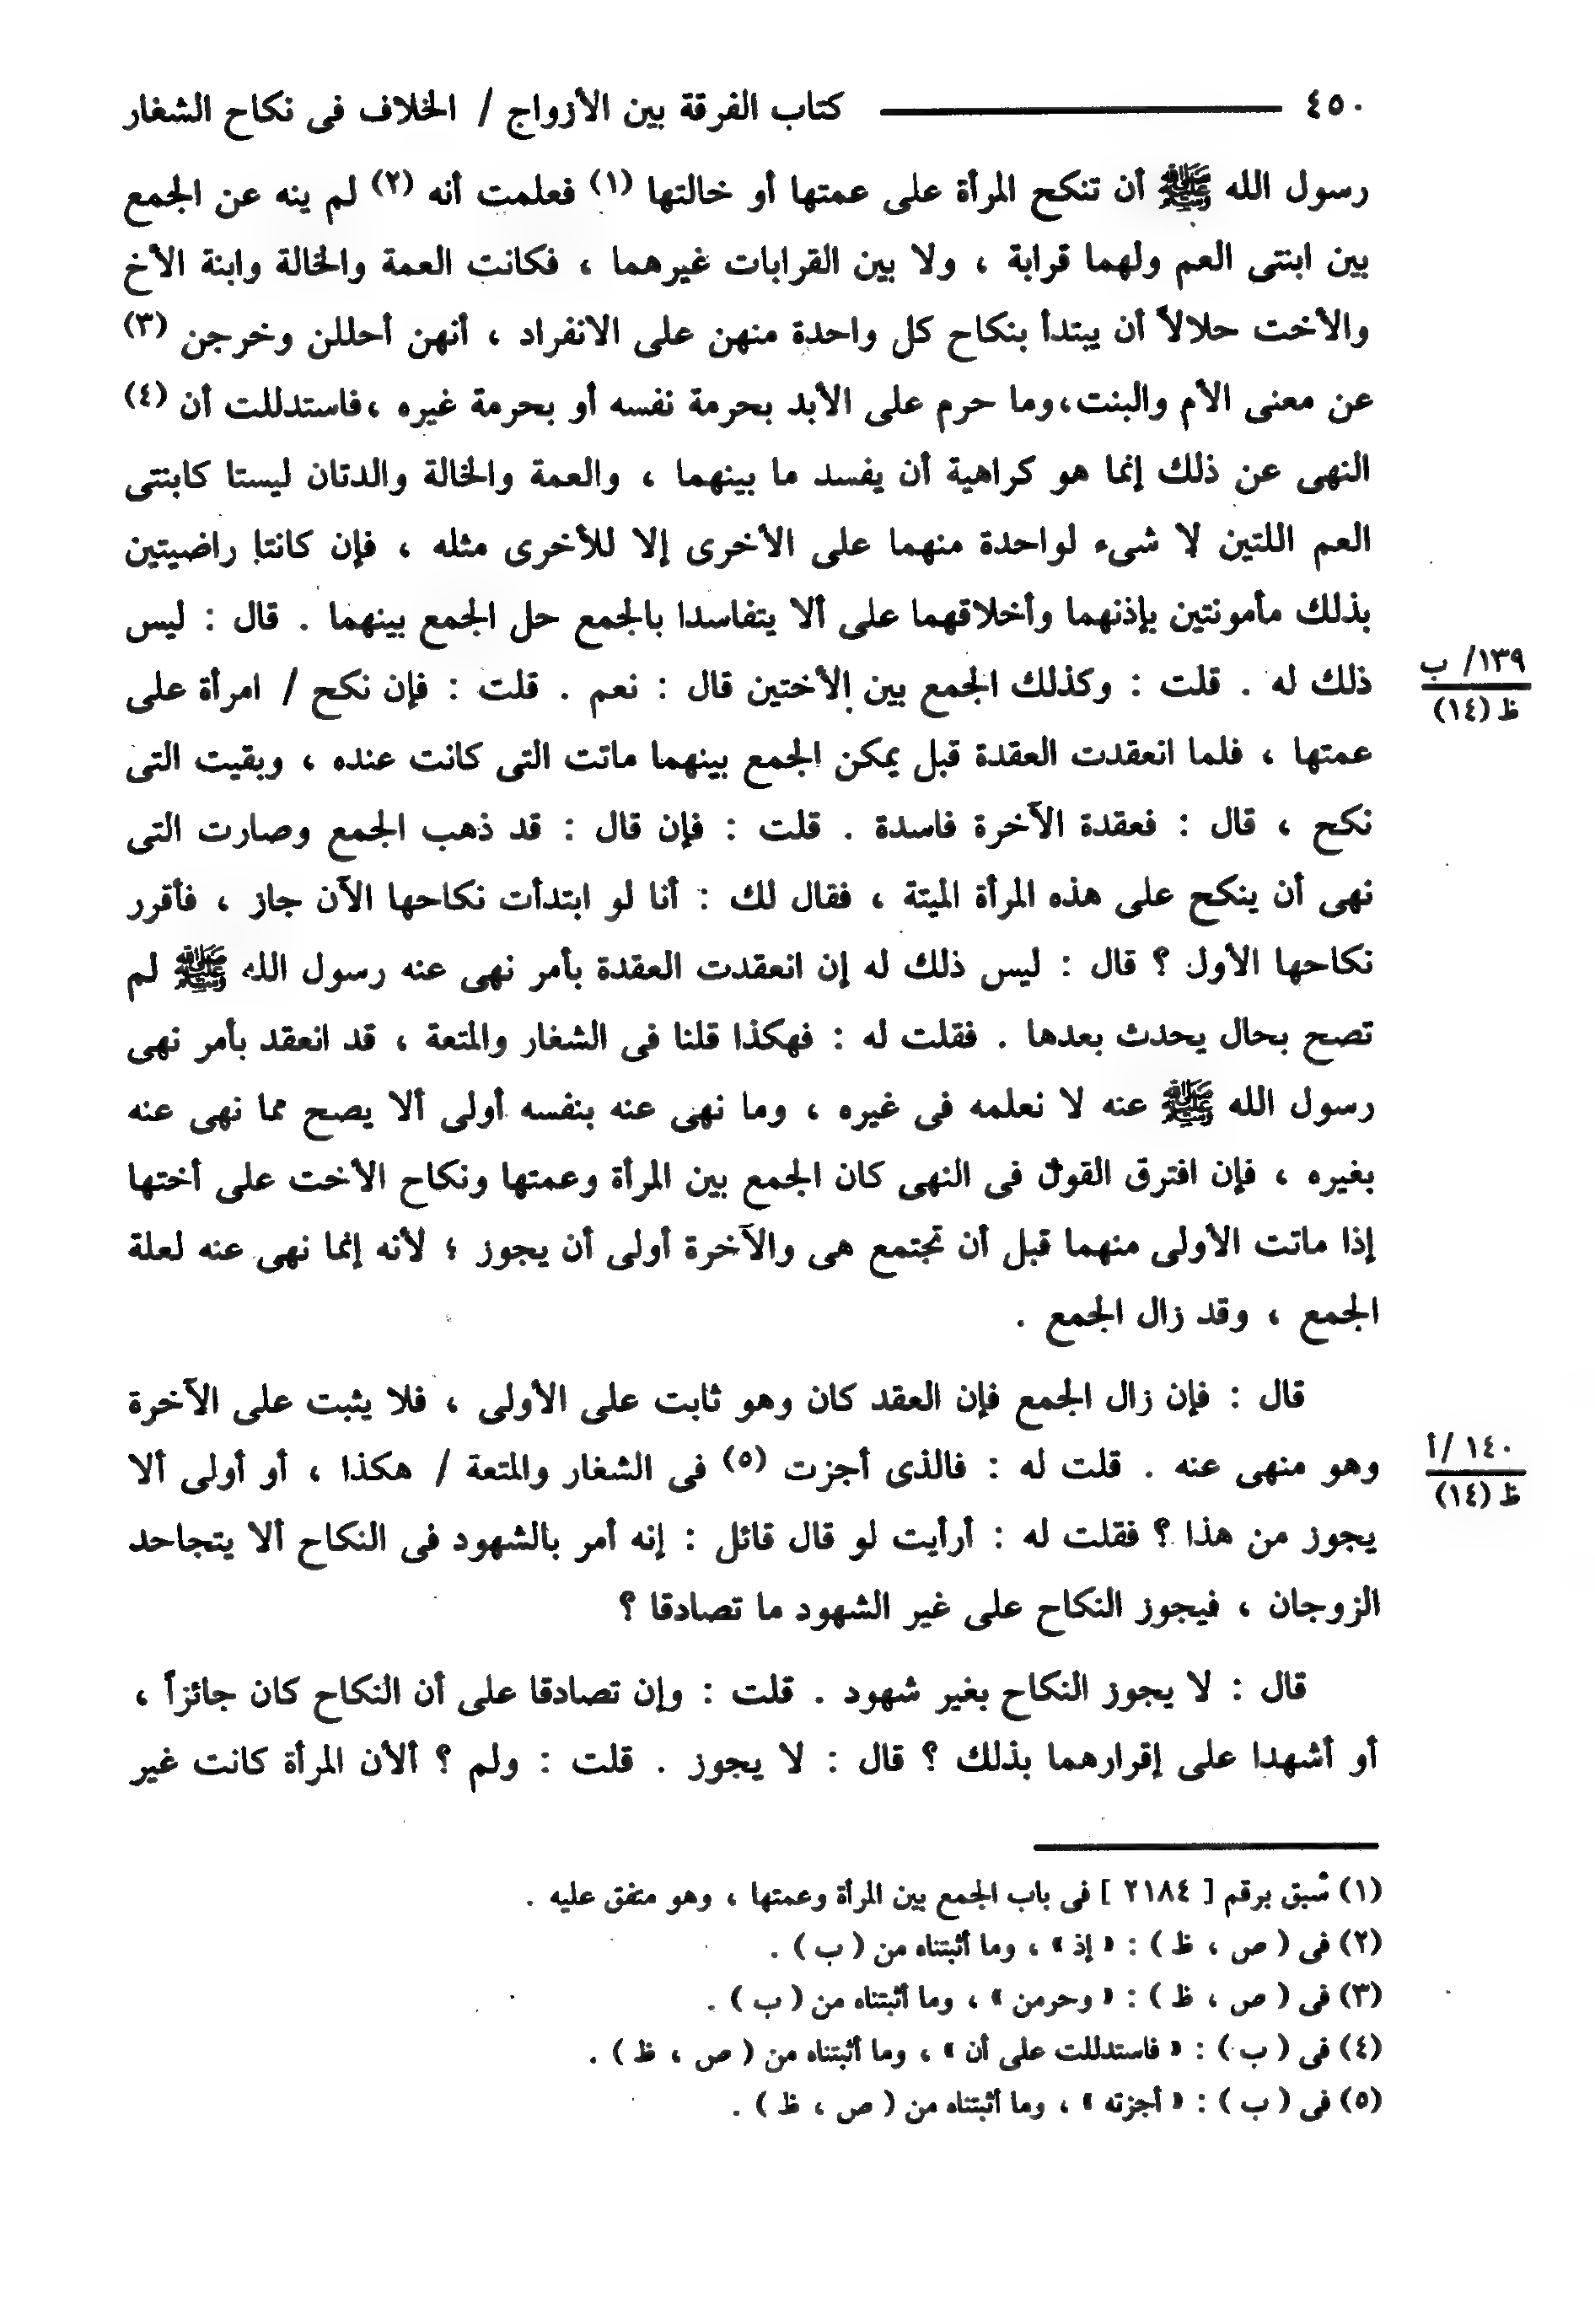 ٤٥٠ كتاب الفرقة بين الأزواج / الخلاف فى نكاح الشغار
رسول الله ﷺ أن تنكح المرأة على عمتها أو خالتها (١) فعلمت أنه (٢) لم ينه عن الجمع
بين ابنتى العم ولهما قرابة ، ولا بين القرابات غيرهما ، فكانت العمة والخالة وابنة الأخ
والأخت حلالاً أن يبتدأ بنكاح كل واحدة منهن على الانفراد ، أنهن أحللن وخرجن (٣)
عن معنى الأم والبنت،وما حرم على الأبد بحرمة نفسه أو بحرمة غيره ،فاستدللت أن (٤)
النهى عن ذلك إنما هو كراهية أن يفسد ما بينهما ، والعمة والخالة والدتان ليستا كابنتى
العم اللتين لا شىء لواحدة منهما على الأخرى إلا للأخرى مثله ، فإن كانتا راضيتين
بذلك مأمونتين بإذنهما وأخلاقهما على ألا يتفاسدا بالجمع حل الجمع بينهما . قال : ليس
ذلك له . قلت : وكذلك الجمع بين الأختين قال : نعم . قلت : فإن نكح / امرأة على
١٣٩/ ب
ظ (١٤)
عمتها ، فلما انعقدت العقدة قبل يمكن الجمع بينهما ماتت التى كانت عنده ، وبقيت التى
نكح ، قال : فعقدة الآخرة فاسدة . قلت : فإن قال : قد ذهب الجمع وصارت التى
نهى أن ينكح على هذه المرأة الميتة ، فقال لك : أنا لو ابتدأت نكاحها الآن جاز ، فأقرر
نكاحها الأول ؟ قال : ليس ذلك له إن انعقدت العقدة بأمر نهى عنه رسول الله ﷺ لم
تصح بحال يحدث بعدها . فقلت له : فهكذا قلنا فى الشغار والمتعة ، قد انعقد بأمر نهى
رسول الله ﷺ عنه لا نعلمه فى غيره ، وما نهى عنه بنفسه أولى ألا يصح مما نهى عنه
بغيره ، فإن افترق القول فى النهى كان الجمع بين المرأة وعمتها ونكاح الأخت على أختها
إذا ماتت الأولى منهما قبل أن تجتمع هى والآخرة أولى أن يجوز ؛ لأنه إنما نهى عنه لعلة
الجمع ، وقد زال الجمع .
قال : فإن زال الجمع فإن العقد كان وهو ثابت على الأولى ، فلا يثبت على الآخرة
وهو منهى عنه . قلت له : فالذى أجزت (٥) فى الشغار والمتعة / هكذا ، أو أولى ألا
١٤٠ /أ
ظ (١٤)
يجوز من هذا ؟ فقلت له : أرأيت لو قال قائل : إنه أمر بالشهود فى النكاح ألا يتجاحد
الزوجان ، فيجوز النكاح على غير الشهود ما تصادقا ؟
قال : لا يجوز النكاح بغير شهود . قلت : وإن تصادقا على أن النكاح كان جائزاً ،
أو أشهدا على إقرارهما بذلك ؟ قال : لا يجوز . قلت : ولم ؟ ألأن المرأة كانت غير
(١) سبق برقم [ ٢١٨٤ ] فى باب الجمع بين المرأة وعمتها ، وهو متفق عليه .
(٢) فى ( ص ، ظ ) : « إذ » ، وما أثبتناه من ( ب ) .
(٣) فى ( ص ، ظ ) : « وحرمن » ، وما أثبتناه من ( ب ) .
(٤) فى ( ب ) : « فاستدللت على أن » ، وما أثبتناه من ( ص ، ظ ) .
(٥) فى ( ب ) : « أجزته » ، وما أثبتناه من ( ص ، ظ ) .